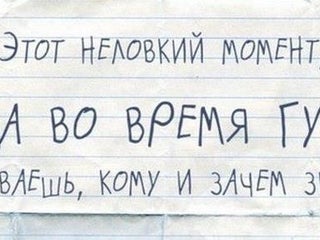 Этот неловкий момент,
А ВО ВРЕМЯ ГУ
ВАЕШЬ, КОМУ И ЗАЧЕМ З